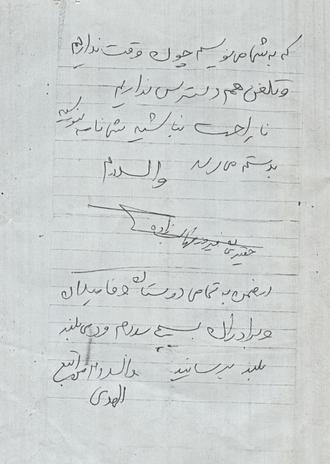 که به شما می نویسم چون وقت نداریم
و تلفن هم دسترس نداریم
ناراحت نباشید شما نامه بنویسید
بدستم می رسد والسلام
در ضمن به تمامی دوستان و فامیلان
و برادران بسیج سلام و دعای بلند
بلند برسانید والسلام من اتبع
الهدی